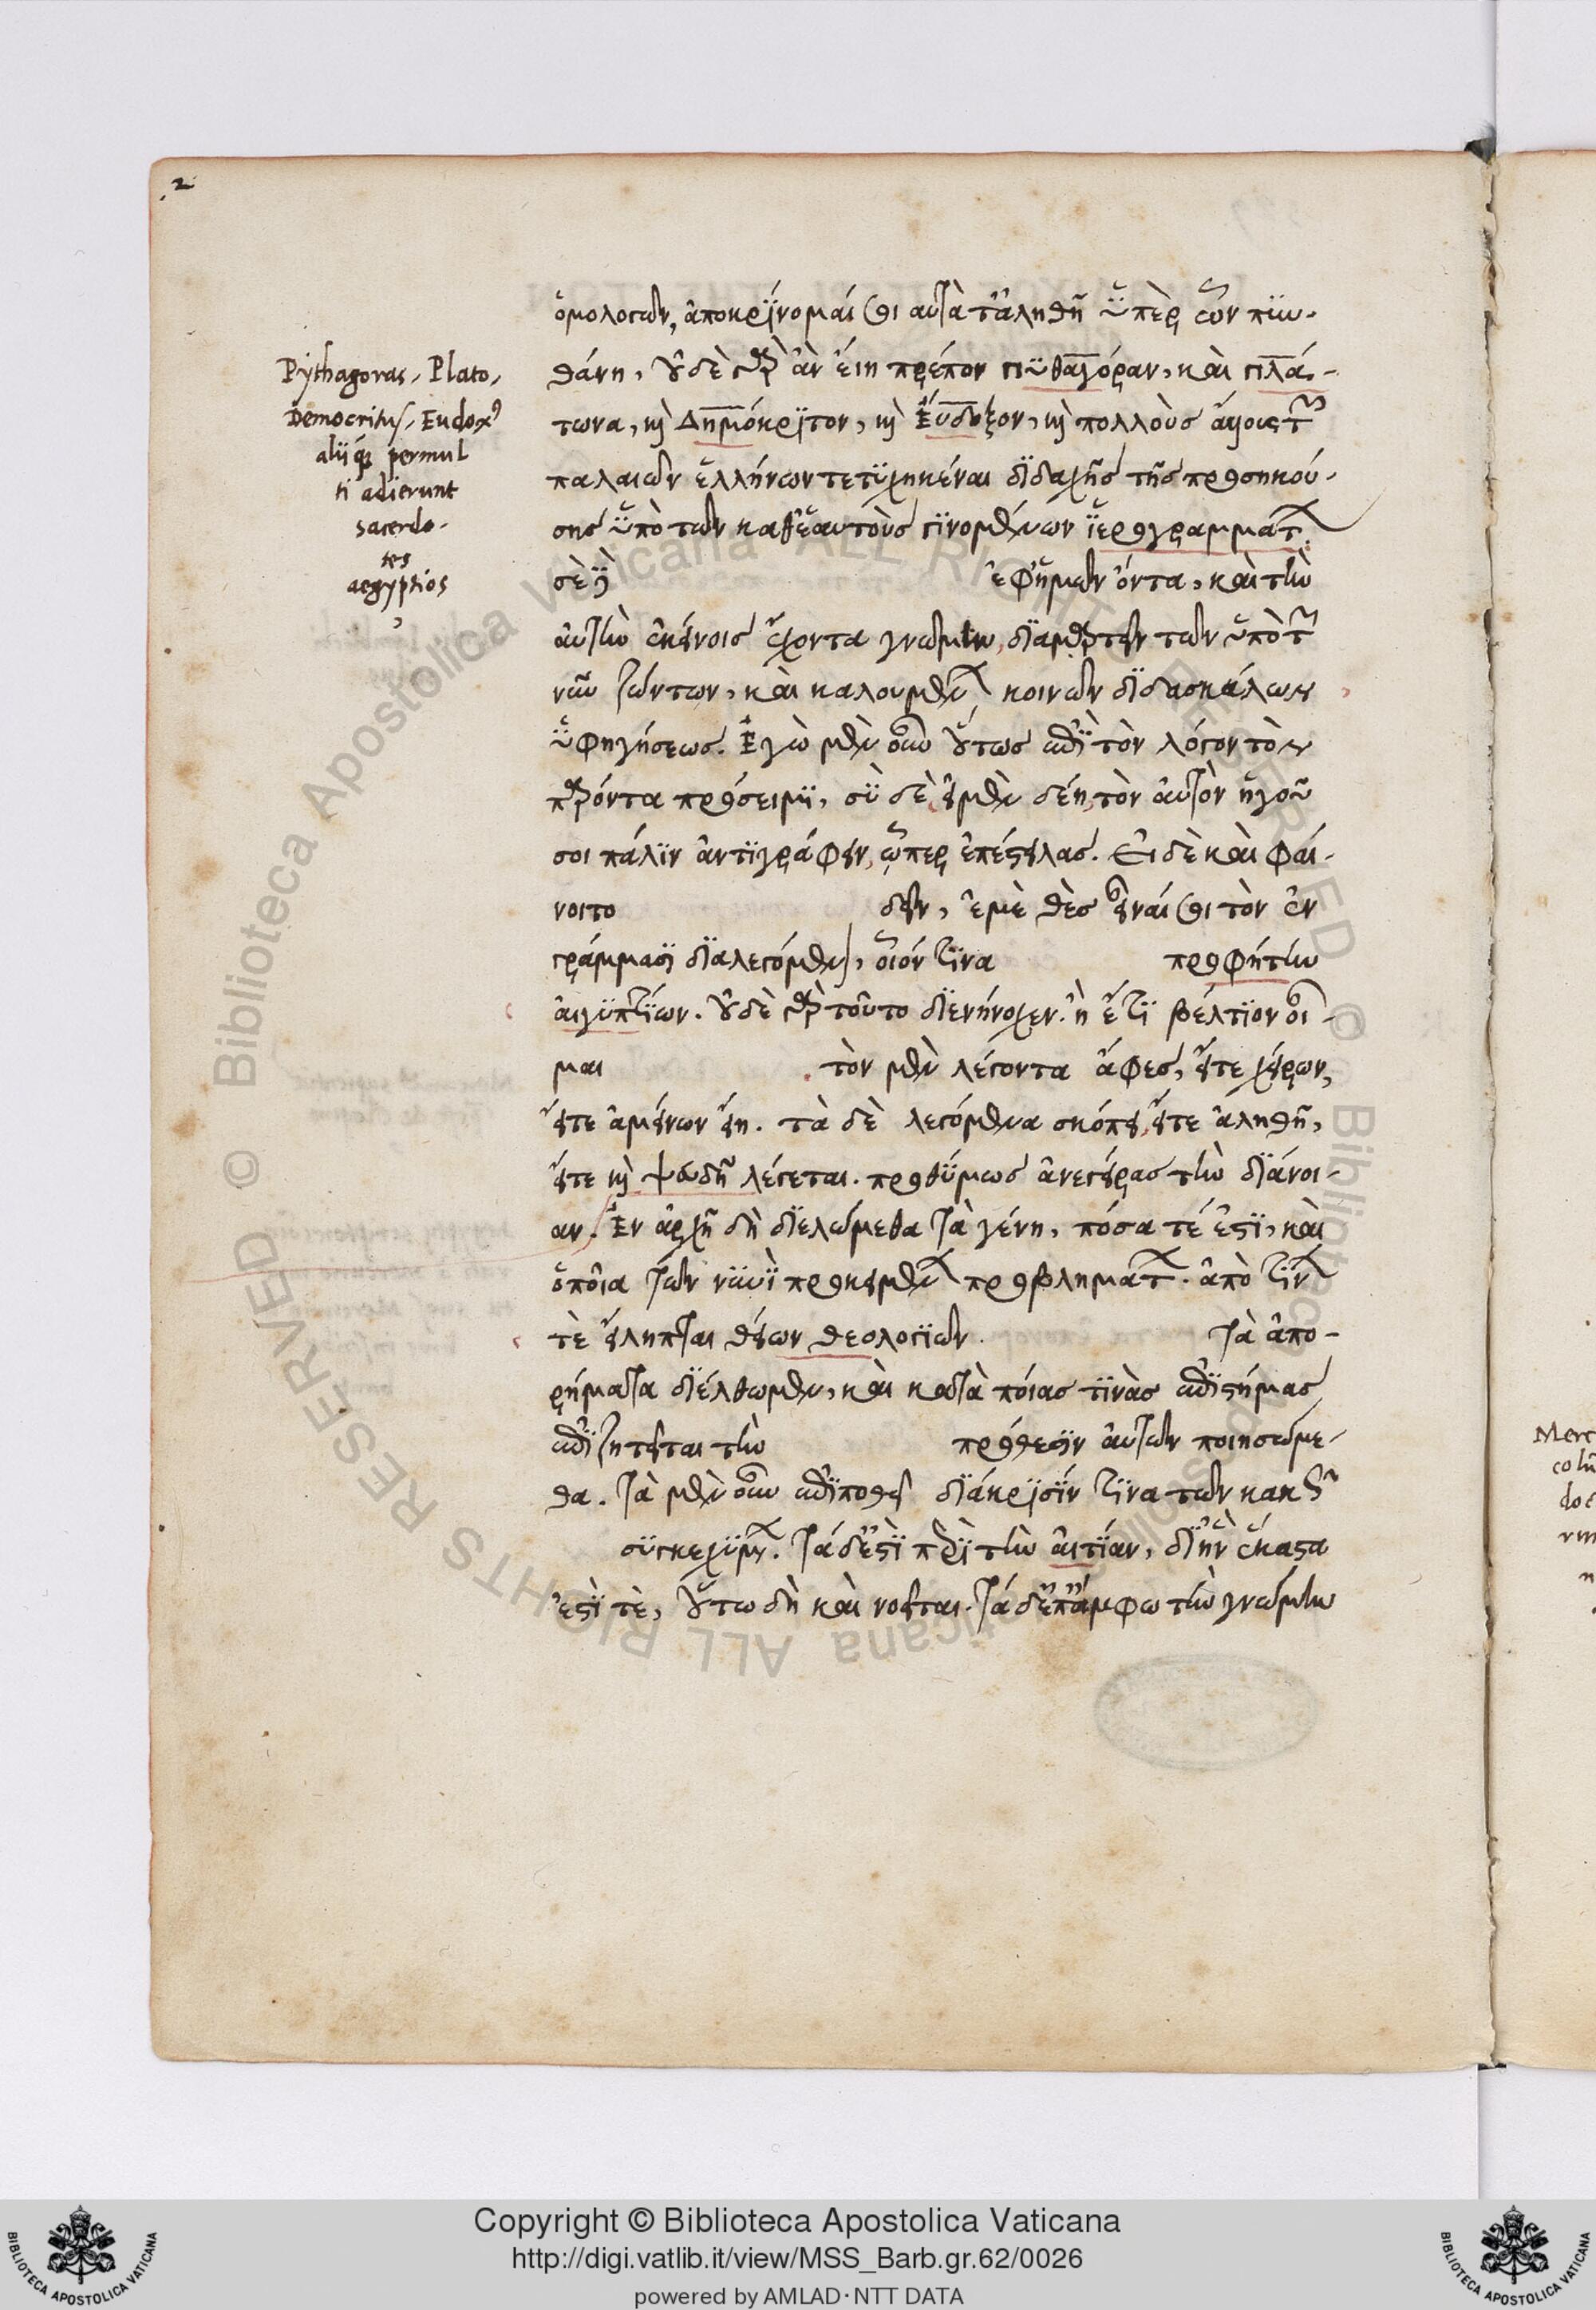 2
ὁμολογῶν, ἀποκρίνομαί σοι αὐτὰ τἀληθῆ ὑπὲρ ὧν πυν-
θάνη, οὐδὲ γὰρ ἂν εἴη πρέπον πυθαγόραν, καὶ πλά-
τωνα, καὶ Δημόκριτον, καὶ Εὔδοξον, καὶ πολλοὺς ἄλλους τῶν
παλαιῶν ἑλλήνων τετυχηκέναι διδαχῆς τῆς προσηκού-
σης ὑπὸ τῶν καθ' ἑαυτοὺς γινομένων ἱερογραμματ.
σὲ δ' ἐφ' ἡμῶν ὄντα, καὶ τὴν
αὐτὴν ἐκείνοις ἔχοντα γνώμην, διαμαρτεῖν τῶν ὑπὸ τῶν
νῦν ζώντων, καὶ καλουμένων κοινῶν διδασκάλων
ὑφηγήσεως. Ἐγὼ μὲν οὖν οὕτως ἐπὶ τὸν λόγον τὸν
παρόντα πρόσειμι, σὺ δὲ, εἰ μὲν δέη, τὸν αὐτὸν ἡγοῦ
σοι πάλιν ἀντιγράφειν, ᾧπερ ἐπέστειλας. Εἰ δὲ καὶ φαί-
νοιτο δεῖν, ἐμὲ θὲς εἶναί σοι τὸν ἐν
γράμμασι διαλεγόμενον, οἷόν τινα προφήτην
αἰγυπτίων. οὐδὲ γὰρ τοῦτο διενήνοχεν. ἢ ἔτι βέλτιον οἶ-
μαι τὸν μὲν λέγοντα ἄφες, εἴτε χείρων,
εἴτε ἀμείνων εἴη. τὰ δὲ λεγόμενα σκόπει, εἴτε ἀληθῆ,
εἴτε καὶ ψευδῆ λέγεται. προθύμως ἀνεγείρας τὴν διάνοι-
αν. Ἐν ἀρχῇ δὴ διελώμεθα τὰ γένη, πόσα τέ ἐστι, καὶ
ὁποῖα τῶν νυνὶ προκειμένων προβλημάτ. ἀπὸ τίνων
τὲ εἴληπται θείων θεολογιῶν. τὰ ἀπο-
ρήματα διέλθωμεν, καὶ κατὰ ποίας τινὰς ἐπιστήμας
ἐπιζητεῖται τὴν πρόθεσιν αὐτῶν ποιησώμε-
θα. τὰ μὲν οὖν ἐπιποθεῖ διάκρισίν τινα τῶν κακῶς
συγκεχυμέν. τὰ δ' ἐστὶ περὶ τὴν αἰτίαν, δι' ἣν ἕκαστα
ἐστὶ τὲ, οὕτω δὴ καὶ νοεῖται. τὰ δ' ἐπ' ἄμφω τὴν γνώμην
Pythagoras, Plato,
Democritus, Eudox⁹
aliiq́ permul
ti adierunt
sacerdo-
tes
aegyptios
Merc
colũ
doc
Copyright © Biblioteca Apostolica Vaticana
http://digi.vatlib.it/view/MSS_Barb.gr.62/0026
powered by AMLAD·NTT DATA
BIBLIOTECA APOSTOLICA VATICANA
BIBLIOTECA APOSTOLICA VATICANA
© Biblioteca Apostolica Vaticana ALL RIGHTS RESERVED
© Biblioteca Apostolica Vaticana ALL RIGHTS RESERVED